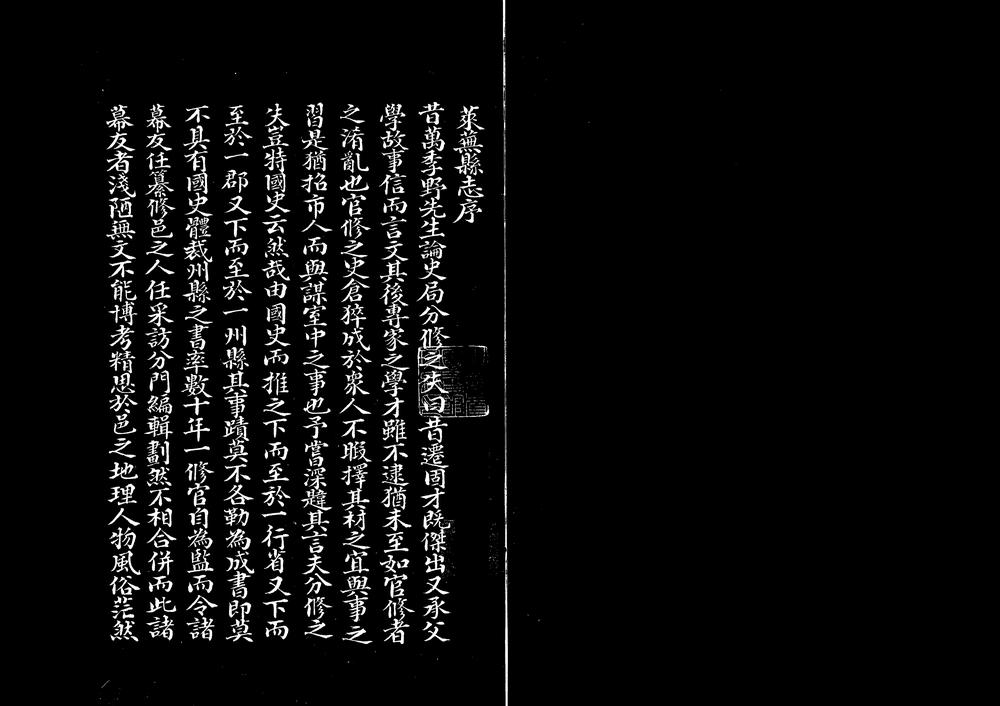 萊蕪縣志序
昔萬季野先生論史局分修之失曰昔遷固才旣傑出又承父
學故事信而言文其後專家之學才雖不逮猶未至如官修者
之淆亂也官修之史倉猝成於衆人不暇擇其材之宜與事之
習是猶招市人而與謀室中之事也予嘗深韙其言夫分修之
失豈特國史云然哉由國史而推之下而至於一行省又下而
至於一郡又下而至於一州縣其事蹟莫不各勒為成書即莫
不具有國史體裁州縣之書率數十年一修官自為監而令諸
幕友任纂修邑之人任采訪分門編輯劃然不相合併而此諸
幕友者淺陋無文不能博考精思於邑之地理人物風俗茫然